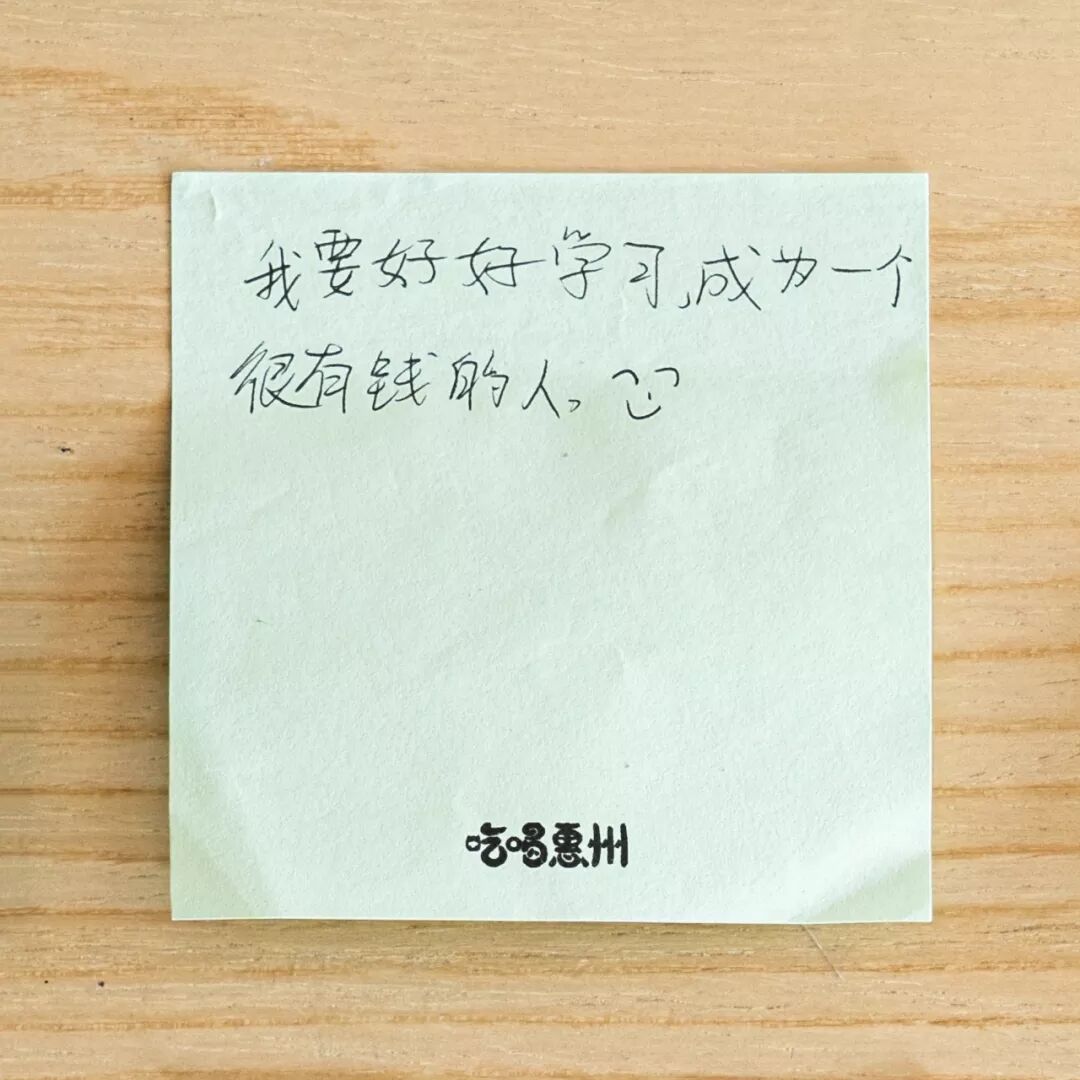 我要好好学习,成为一个
很有钱的人。
吃喝惠州